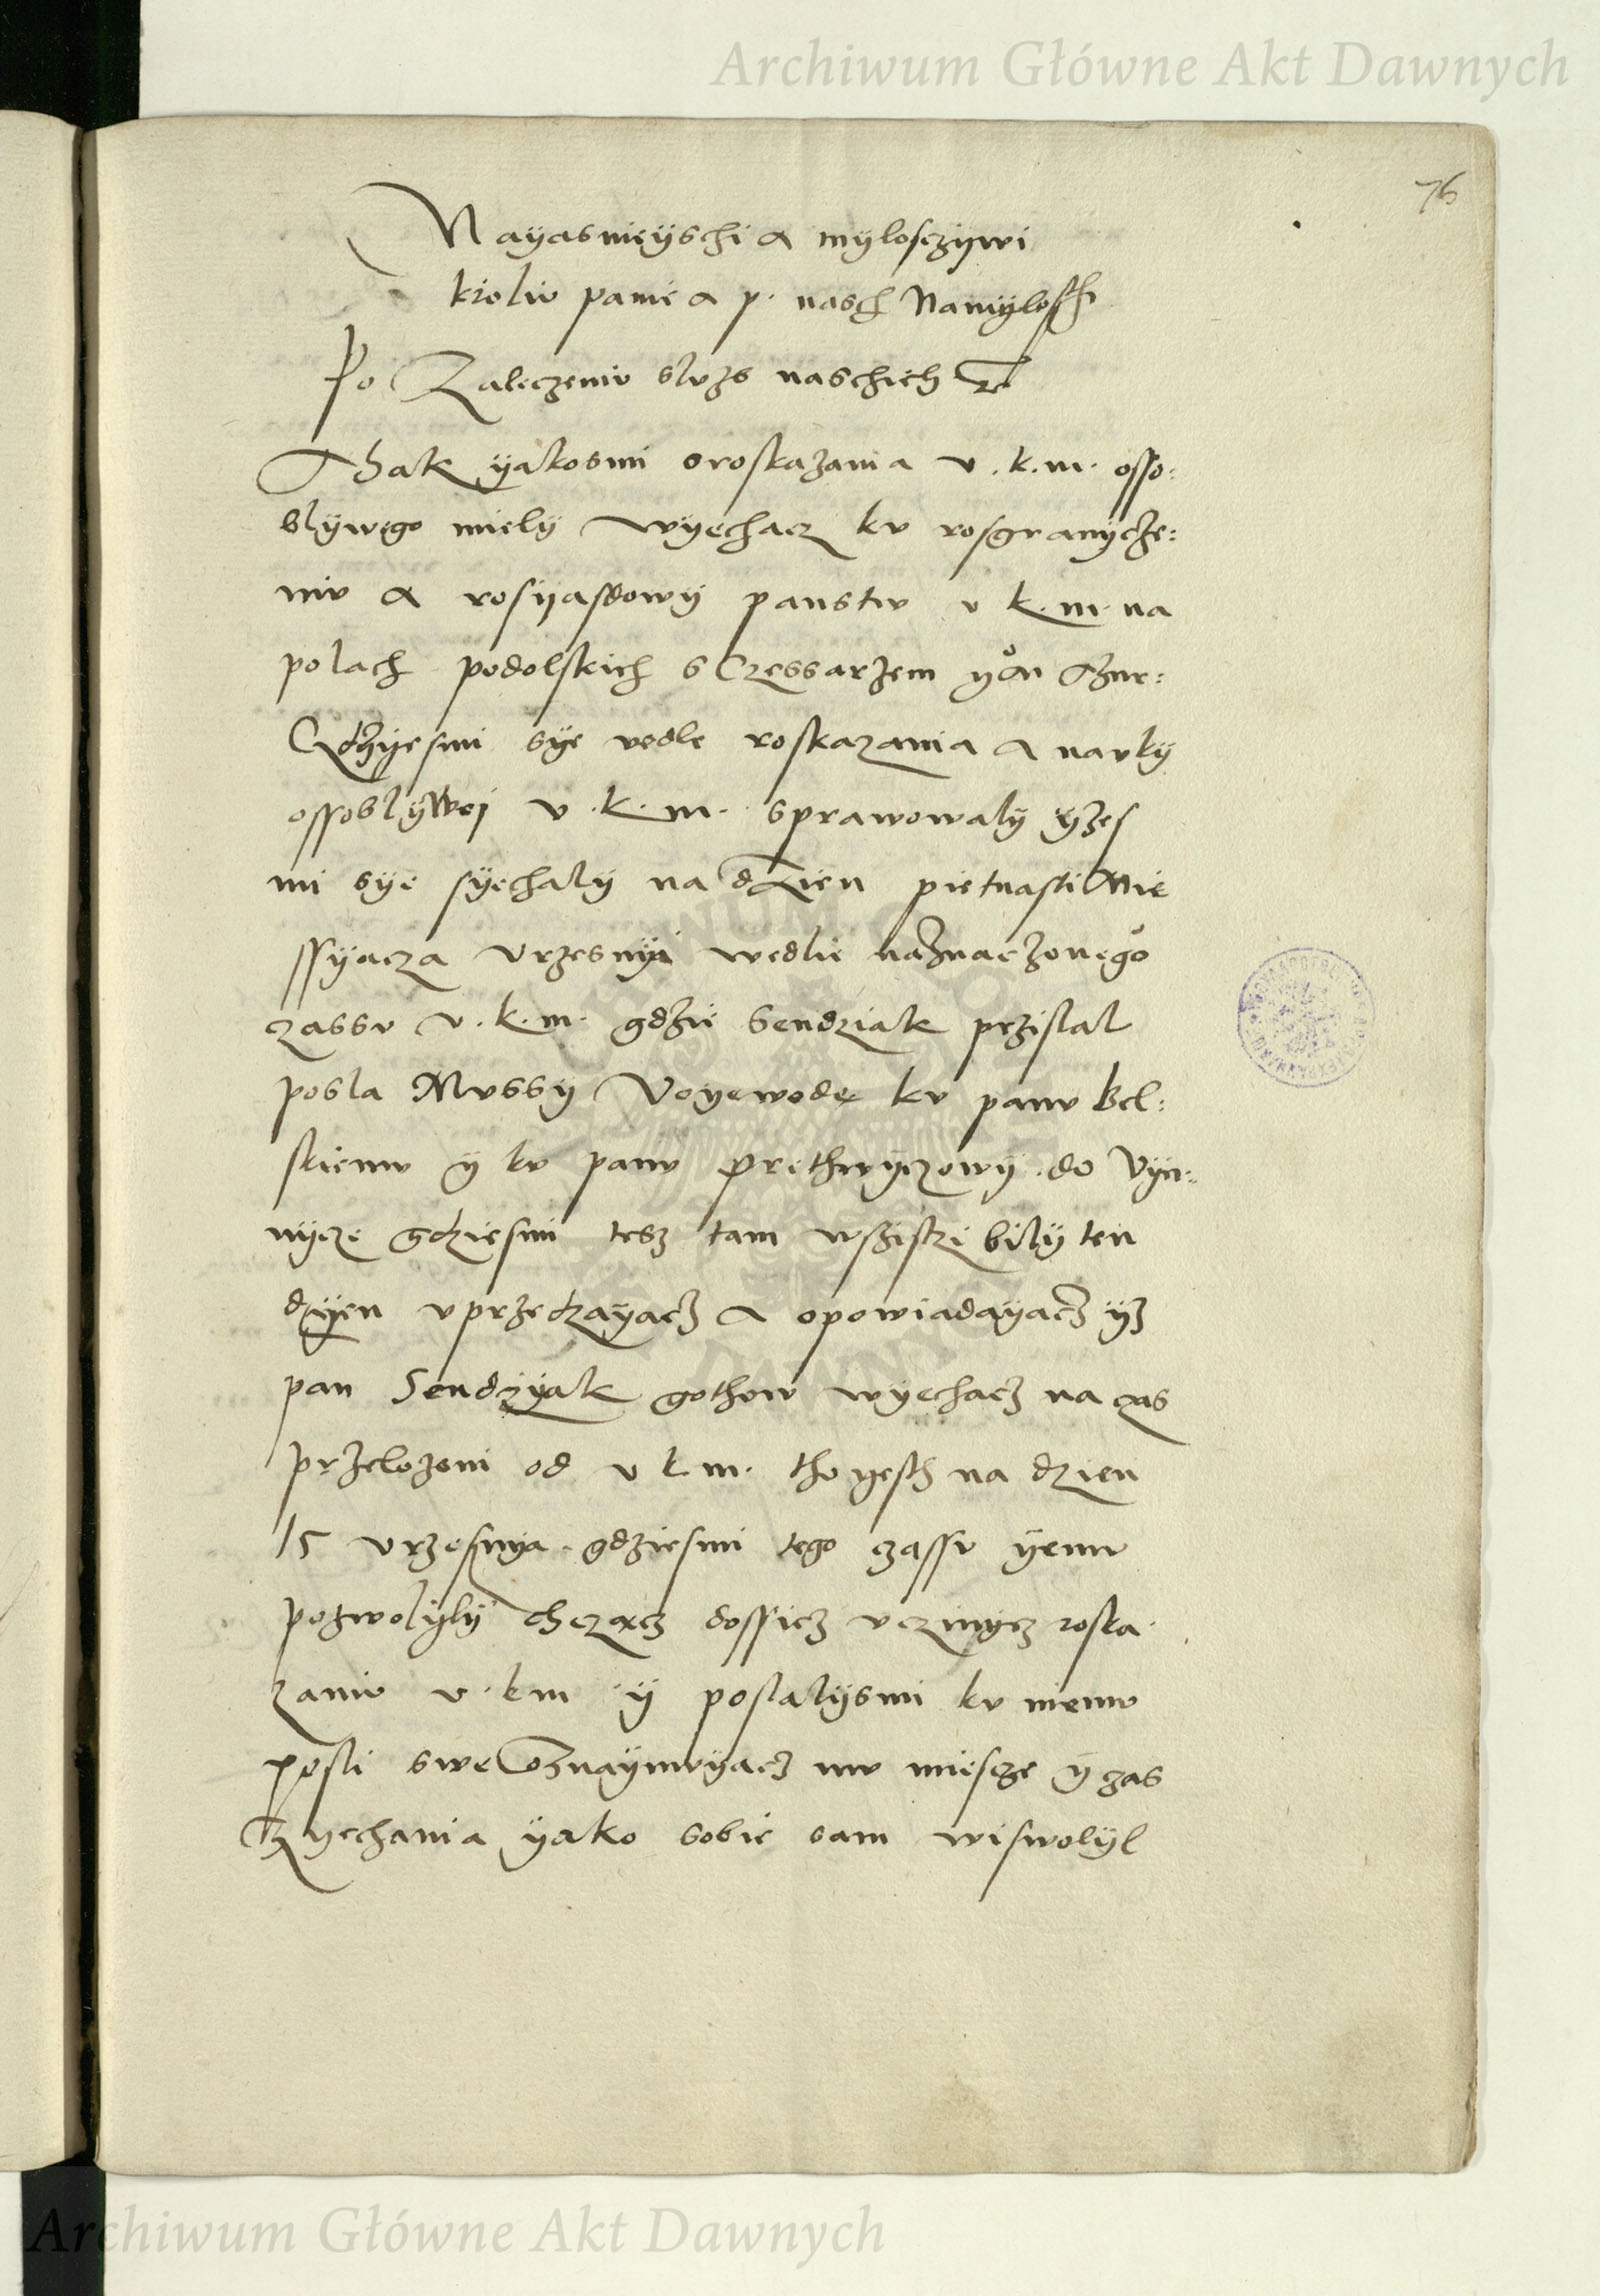 Archiwum Główne Akt Dawnych
76
Nayasnieyschi a mylosczywi
kroliv panie a p. nasch Namylosch
Po Zaleczeniv slvzb naschich etc
Thak yakosmi o roskazania v. k. m. osso:
blywego miely wyechacz kv rosgranycze:
niv a rosyasdowy panstw v k. m. na
polach podolskich s Czessarzem Thur:
Gdzyesmi sye vedle roskazania a navky
ossoblywej v. k. m. sprawowaly yzes
mi sye syechaly na dzien pietnasti Mie
ssyacza vrzesnyi wedlie naznaczonego
czassv v. k. m. gdzie Sendziak przislal
posla Mvssy Voyewode kv panv Bel:
skiemv y kv panv prethwyczowy. do Vyn:
nycze gdziesmi tesz tam wszistzi bily ten
dzyen vprzedzayacz a opowiadayacz yz
pan Sendzyak gothow wyechacz na czas
przelozoni od v k m. tho yesth na dzien
15 vrzesnya. gdziesmi tego czassv yemv
pozwolyly chczacz dossicz vczinycz roska
zaniv v. k m y poslalysmi kv niemv
posli swe Oznaymvyacz mv miescze y czas
Zyechania yako sobie sam wiswolyl
Archiwum Główne Akt Dawnych